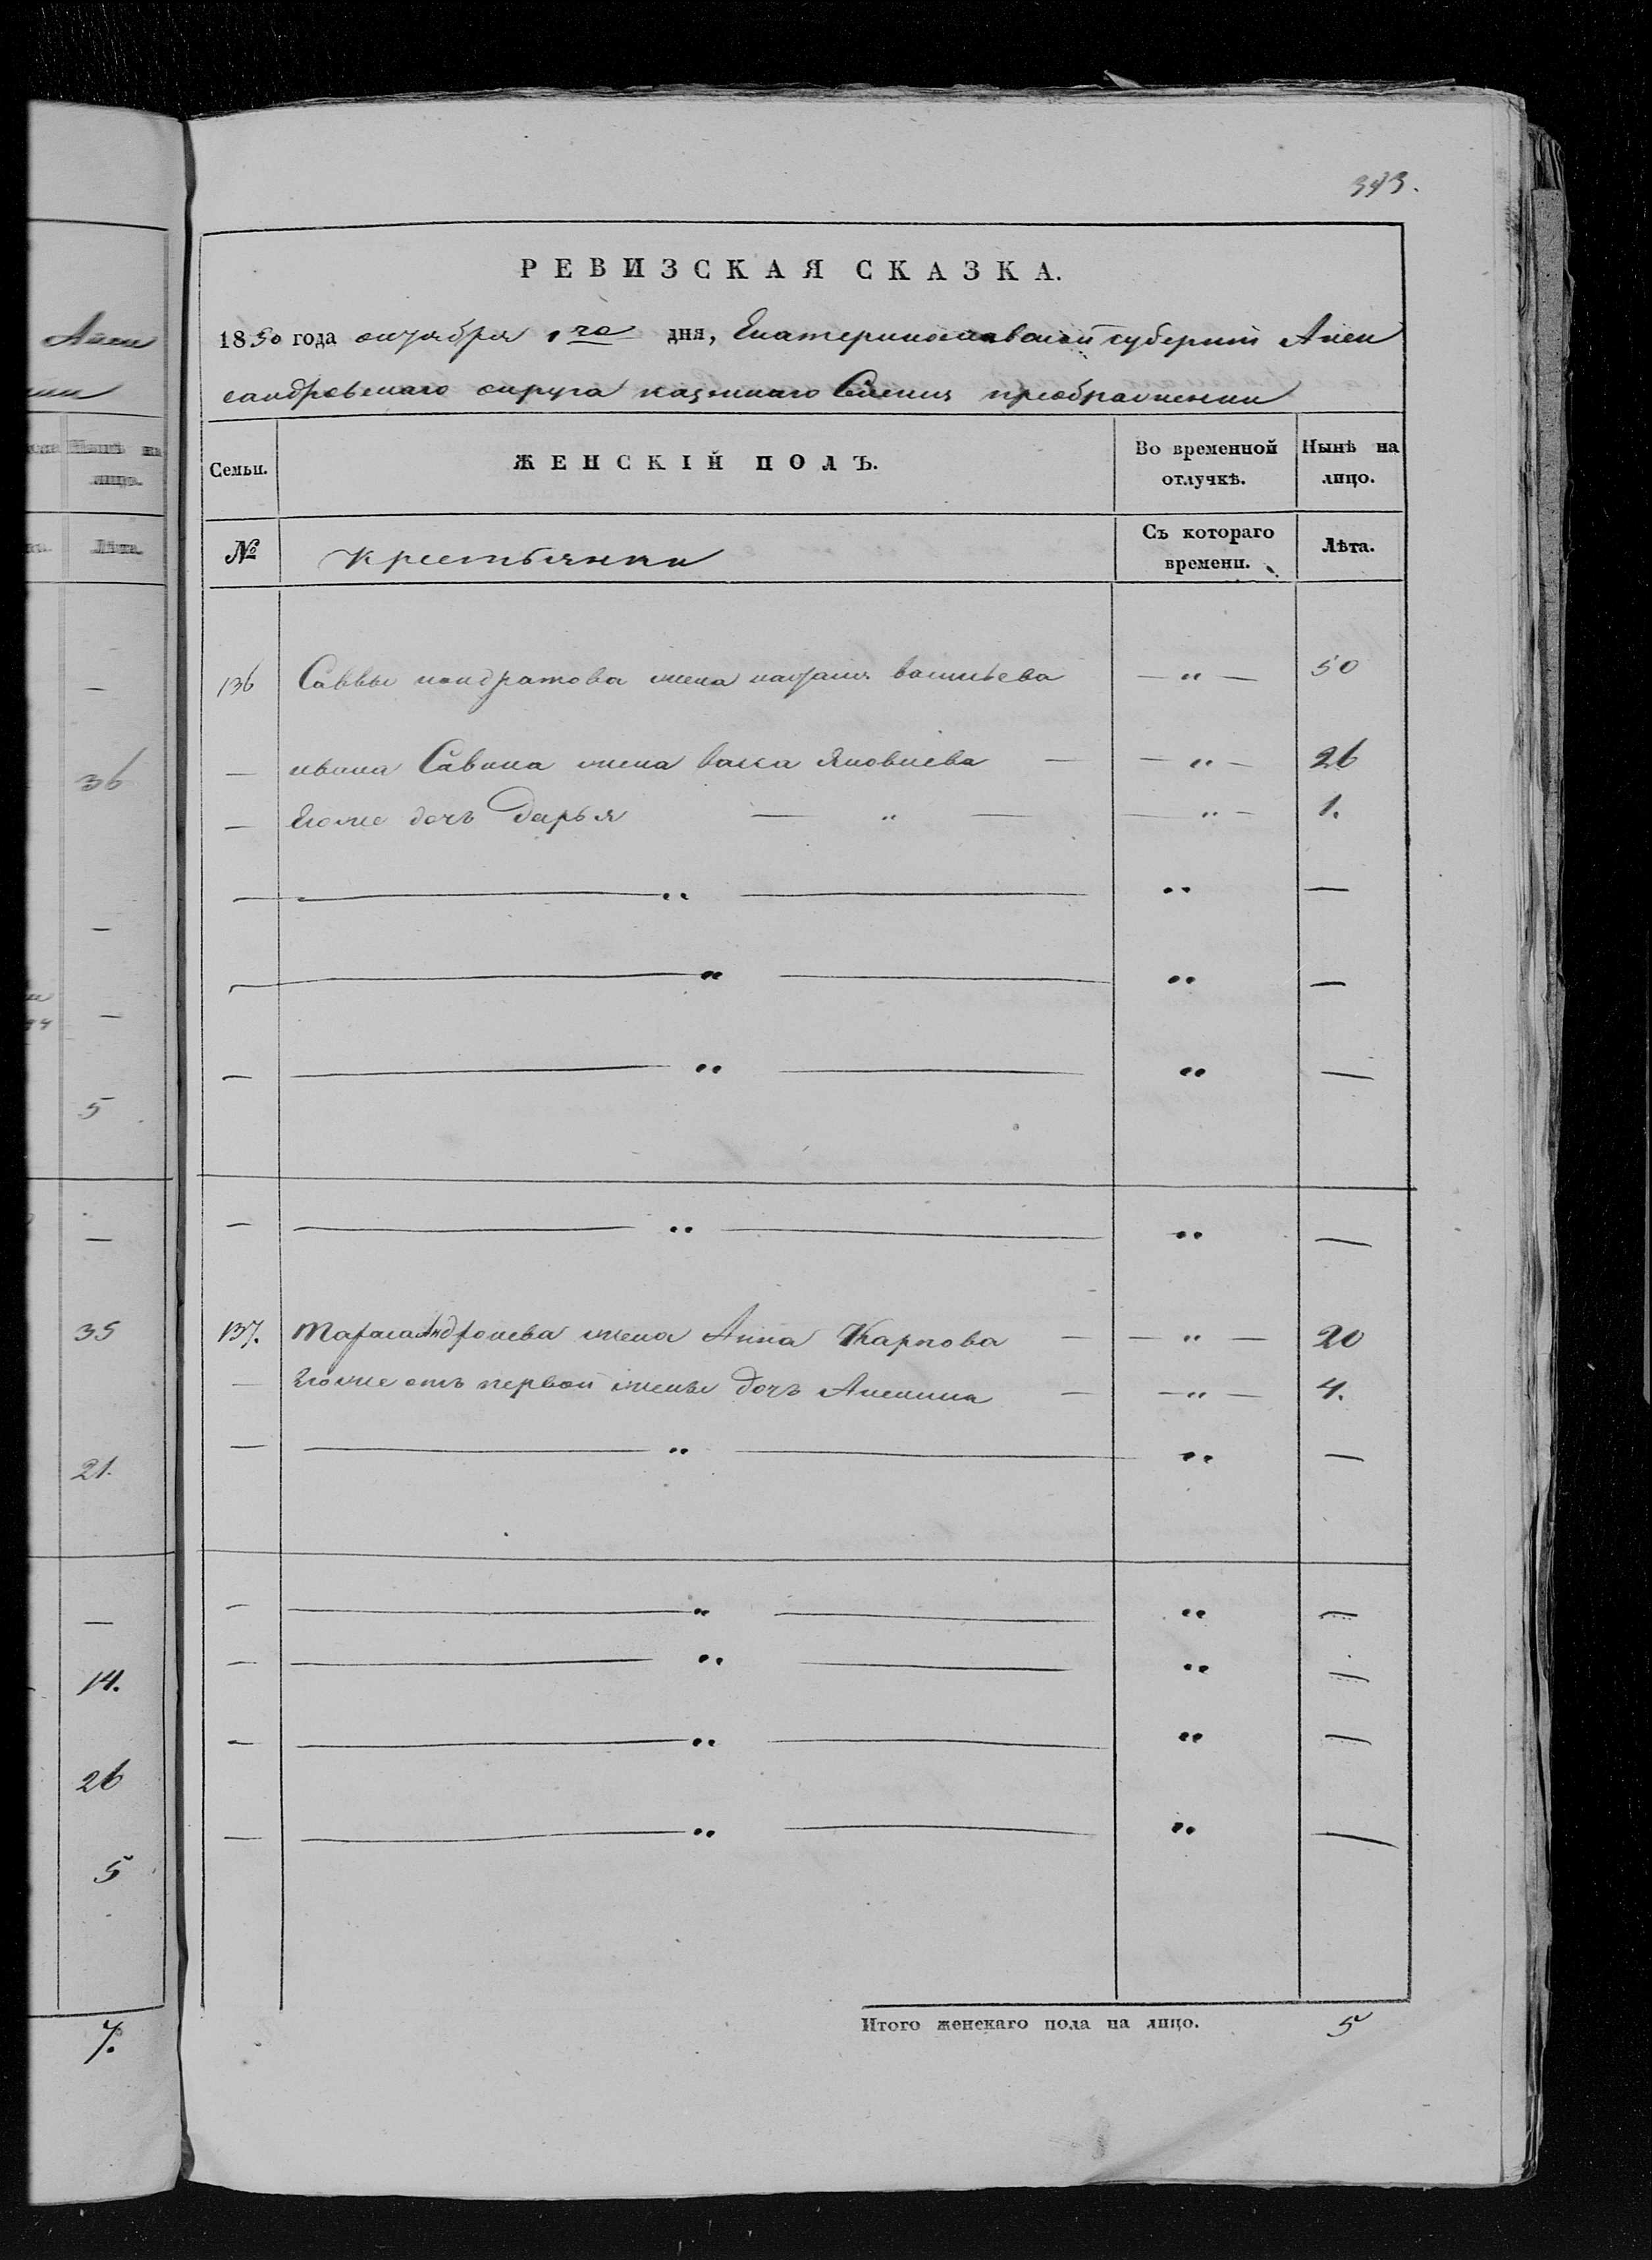 Алек
36
5
35
21.
14.
26
5
7.
343.
РЕВИЗСКАЯ СКАЗКА.
1850 года октября 1го дня, Екатеринославской губернии Алек
сандровскаго округа казеннаго Селения преображенки
Семьи. ЖЕНСКІЙ ПОЛЪ. Во временной отлучкѣ. Нынѣ на лицо.
№ Крестьянки Съ котораго времени. Лѣта.
136 Саввы кондратова жена василева — " — 50
— ивана Савина жена васса Яковлева — — " — 26
— Егоже дочь Дарья — " — — " — 1.
— — " — " —
— — " — " —
— — " — " —
— — " — " —
137. Тараса Андронова жена Анна Карпова — — " — 20
— Егоже отъ первой жены дочь Акилина — — " — 4.
— — " — " —
— — " — " —
— — " — " —
— — " — " —
— — " — " —
Итого женскаго пола на лицо. 5